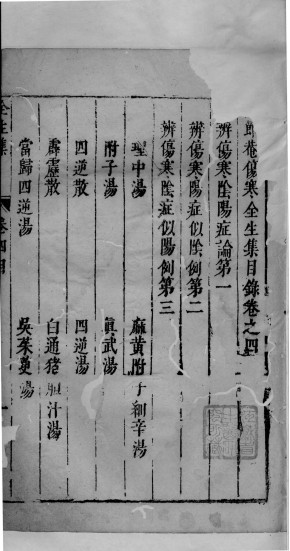 節菴傷寒全生集目錄卷之四
辨傷寒陰陽症論第一
辨傷寒陽症似陰例第二
辨傷寒陰症似陽例第三
理中湯 麻黃附子細辛湯
附子湯 眞武湯
四逆散 四逆湯
霹靂散 白通猪膽汁湯
當歸四逆湯 吳茱萸湯
全生集 卷四目